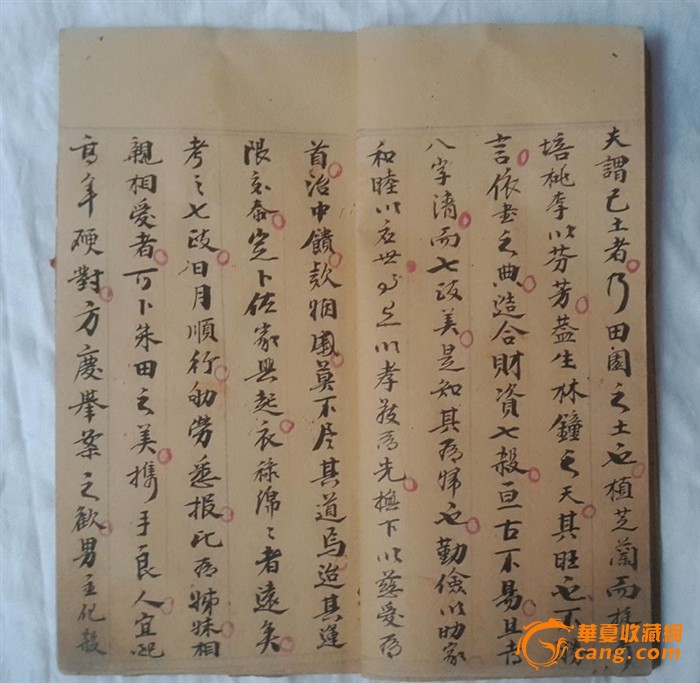 夫謂己土者乃田園之土也植芝蘭而
培桃李以芬芳蓋生林鐘之天其旺也可
言依書之典造合財資七殺亘古不易且
八字清而七政美是知其為婦也勤儉以助家
和睦以處世以孝敬為先撫下以慈愛為
首治中饋款姻戚莫不尽其道焉迨其運
限交泰定卜佐家興起衣祿綿〻者遠矣
考之七政日月順行劬勞悉报比為姊妹相
親相愛者可卜朱田之美携手良人宜
高年硬對方慶舉案之歡男主化殺
華夏收藏網
cang.com